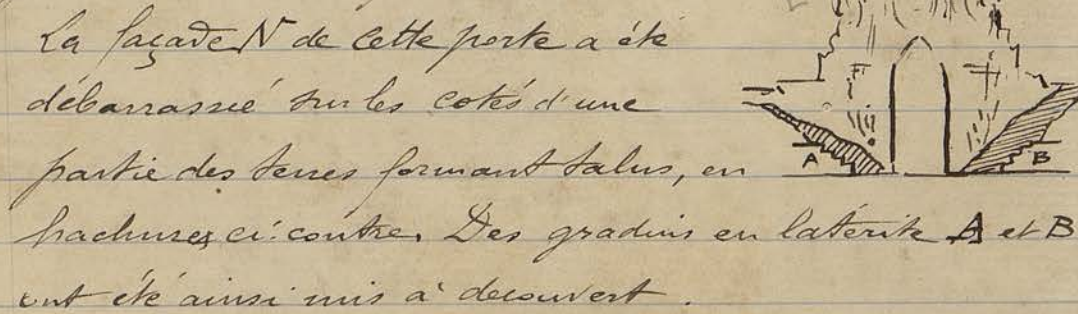 La façade N de cette porte a été
débarrassée sur les cotés d'une
partie des terres formant talus, en
hachures ci-contre. Des gradins en latérite A et B
ont été ainsi mis à decouvert.
A
B